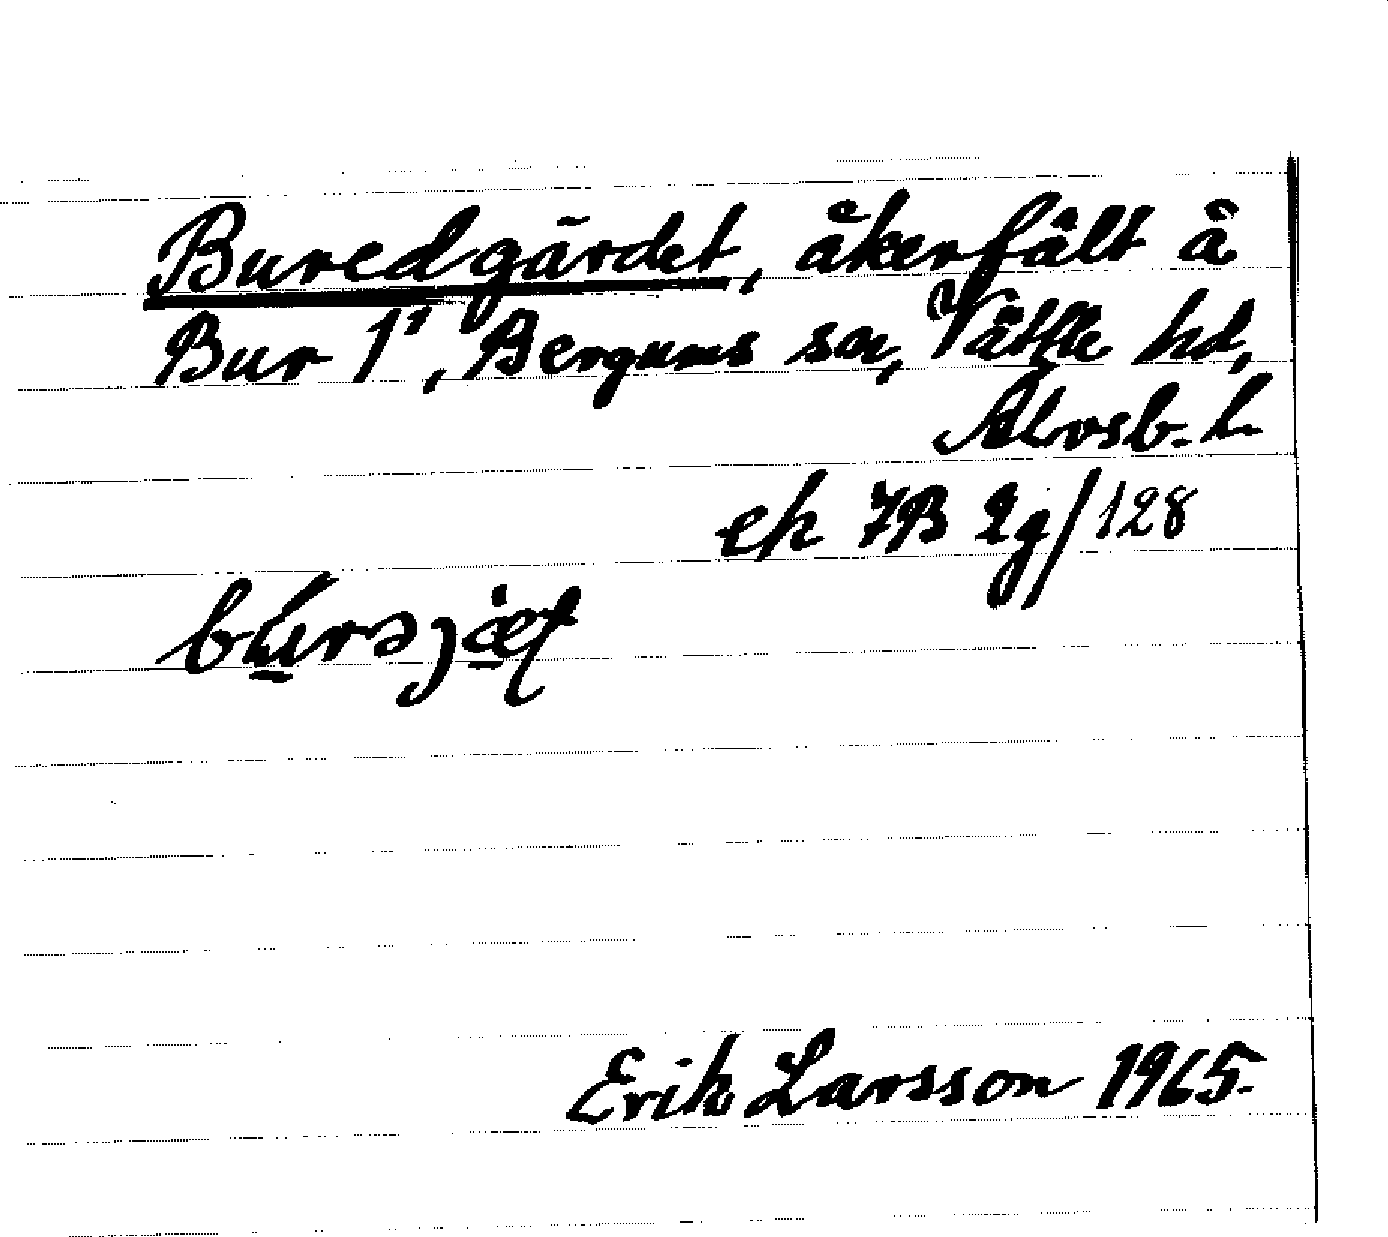 Buredgärdet, åkerfält å
Bur 1¹, Bergums sn, Vättle hd,
Älvsb. l.
ek 7B 2g/128
Erik Larsson 1965.